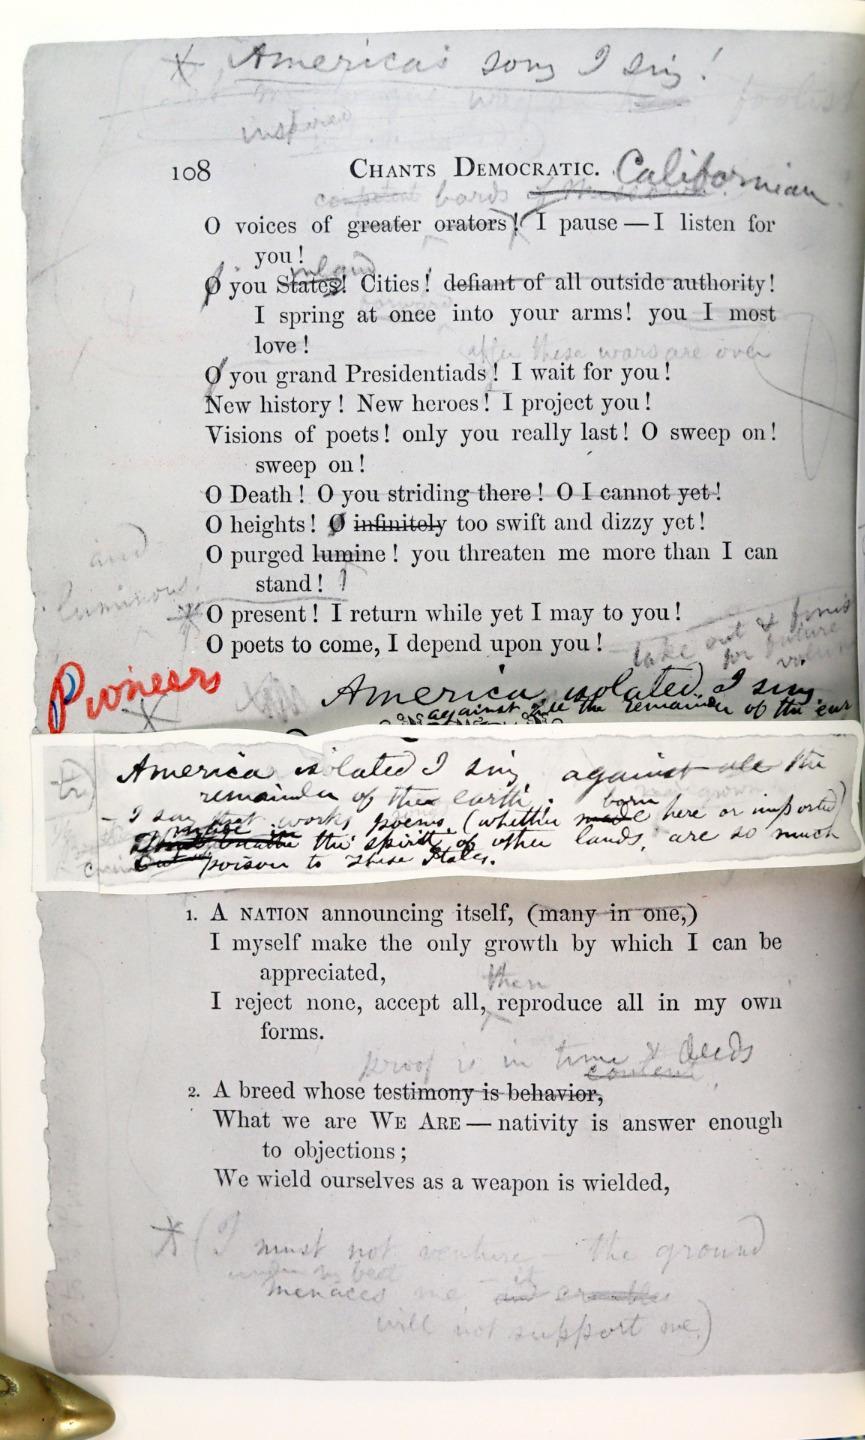 * America's song I sing!
inspired
108 CHANTS DEMOCRATIC. Californian
competent bards
O voices of greater orators! I pause — I listen for
you!
inland
O you States! Cities! defiant of all outside authority!
I spring at once into your arms! you I most
love!
after these wars are over
O you grand Presidentiads! I wait for you!
New history! New heroes! I project you!
Visions of poets! only you really last! O sweep on!
sweep on!
O Death! O you striding there! O I cannot yet!
O heights! O infinitely too swift and dizzy yet!
and
O purged lumine! you threaten me more than I can
stand!
luminous!
O present! I return while yet I may to you!
O poets to come, I depend upon you!
take out &
for future
Pioneers
America isolated I sing
against all the remainder of the
America isolated I sing against all the
remainder of the earth.
born
– I say that works, poems (whether made here or imported)
the spirit of other lands, are so much
poison to These States.
1. A NATION announcing itself, (many in one,)
I myself make the only growth by which I can be
appreciated,
then
I reject none, accept all, reproduce all in my own
forms.
proof is in time & deeds
content
2. A breed whose testimony is behavior,
What we are WE ARE — nativity is answer enough
to objections;
We wield ourselves as a weapon is wielded,
* (I must not venture – the ground
under my feet
menaces me – it
will not support me.)